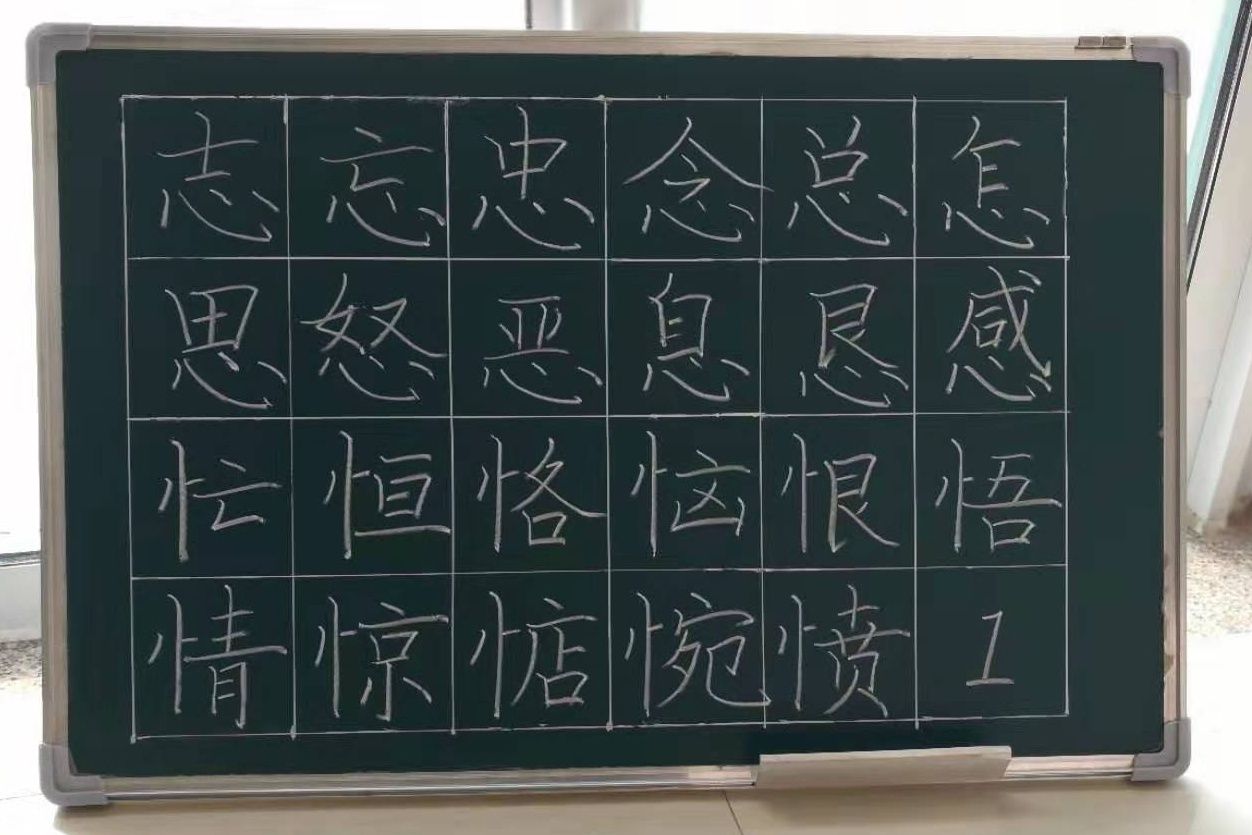 志 忘 忠 念 总 怎
思 怒 恶 息 恳 感
忙 恒 恪 恼 恨 悟
情 惊 惦 惋 愤 1